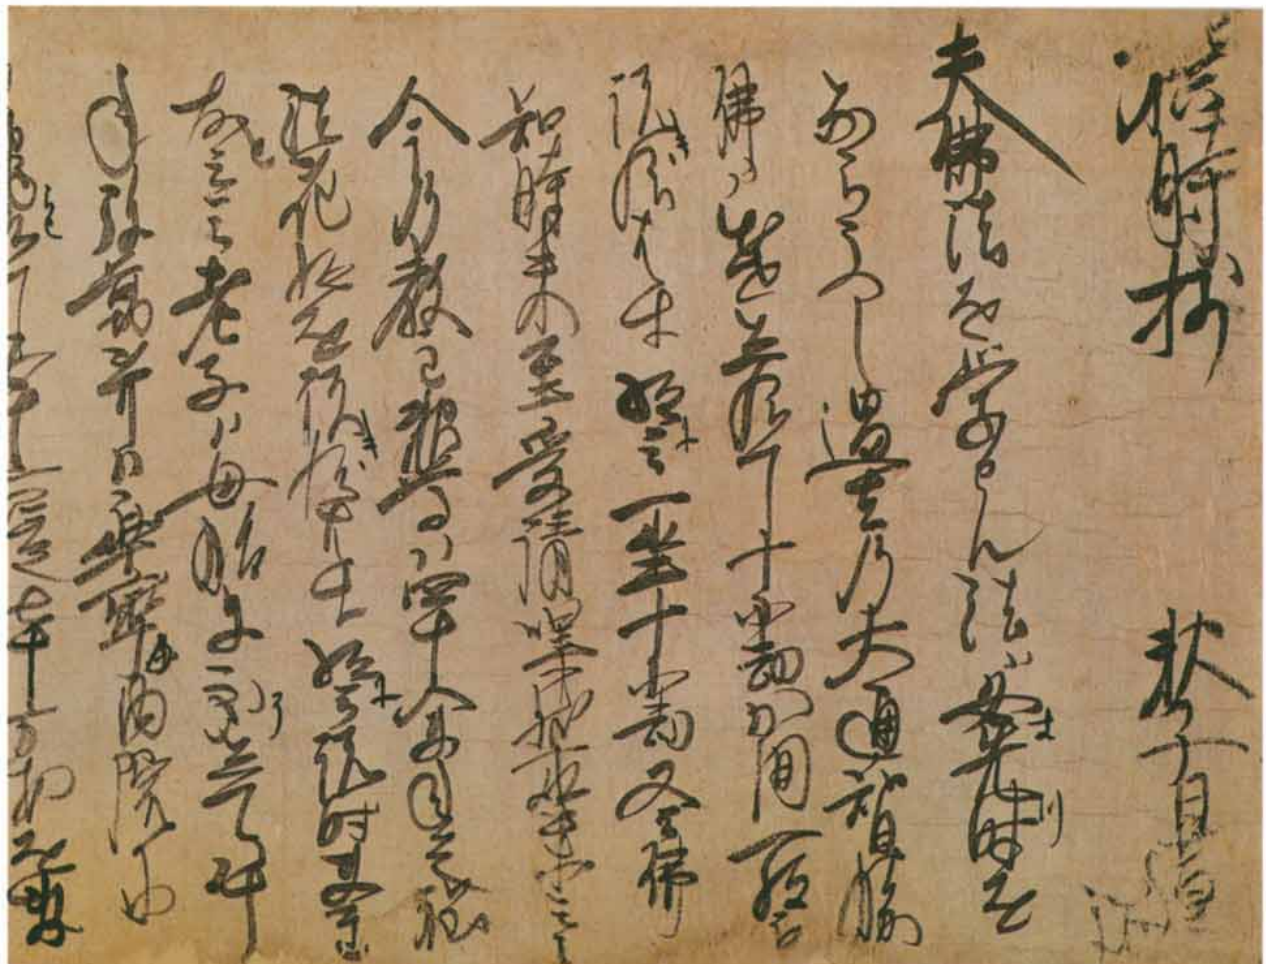 撰時抄 釈子日蓮述
夫佛法を学せん法ハ必先時を
ならうへし過去の大通智勝
佛ハ出世し給て十小劫か間一経も
説給はす経ニ云一坐十小劫又云佛
知時未至受請黙然坐等云云
今の教主釋尊ハ四十余年之程
法花経を説給はす経ニ云説時未至
故と云云老子ハ母胎に処して八十
年弥勒菩薩ハ兜率の内院に